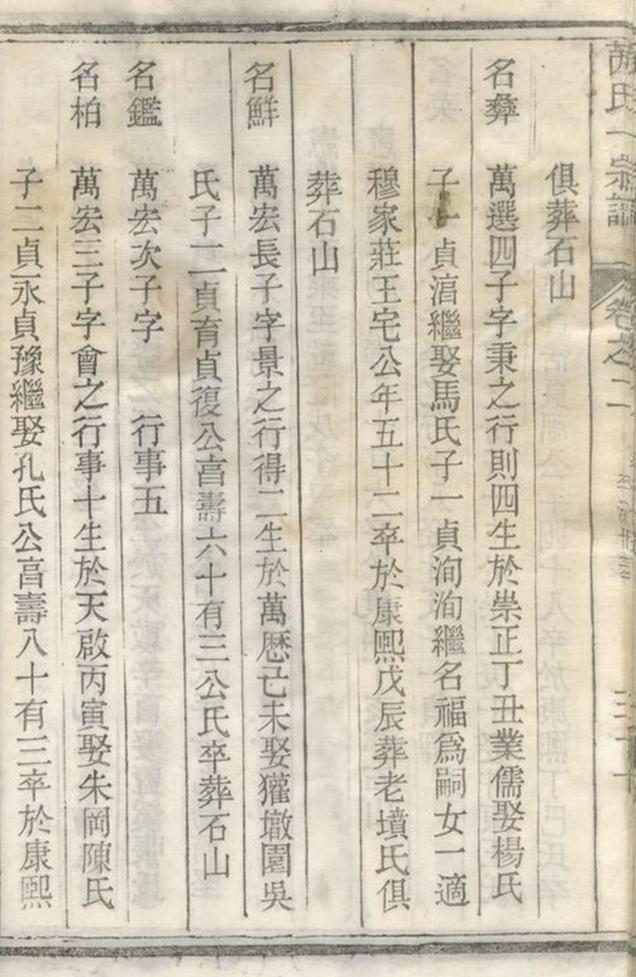 氏一宗譜 卷之二
俱葬石山
名彝 萬選四子字秉之行則四生於崇正丁丑業儒娶楊氏
子一貞滀繼娶馬氏子一貞洵洵繼名福爲嗣女一適
穆家莊王宅公年五十二卒於康熙戊辰葬老墳氏俱
葬石山
名鮮 萬宏長子字景之行得二生於萬歷己未娶獾墩園吳
氏子二貞育貞復公富壽六十有三公氏卒葬石山
名鑑 萬宏次子字 行事五
名柏 萬宏三子字會之行事十生於天啟丙寅娶朱岡陳氏
子二貞永貞豫繼娶孔氏公富壽八十有三卒於康熙